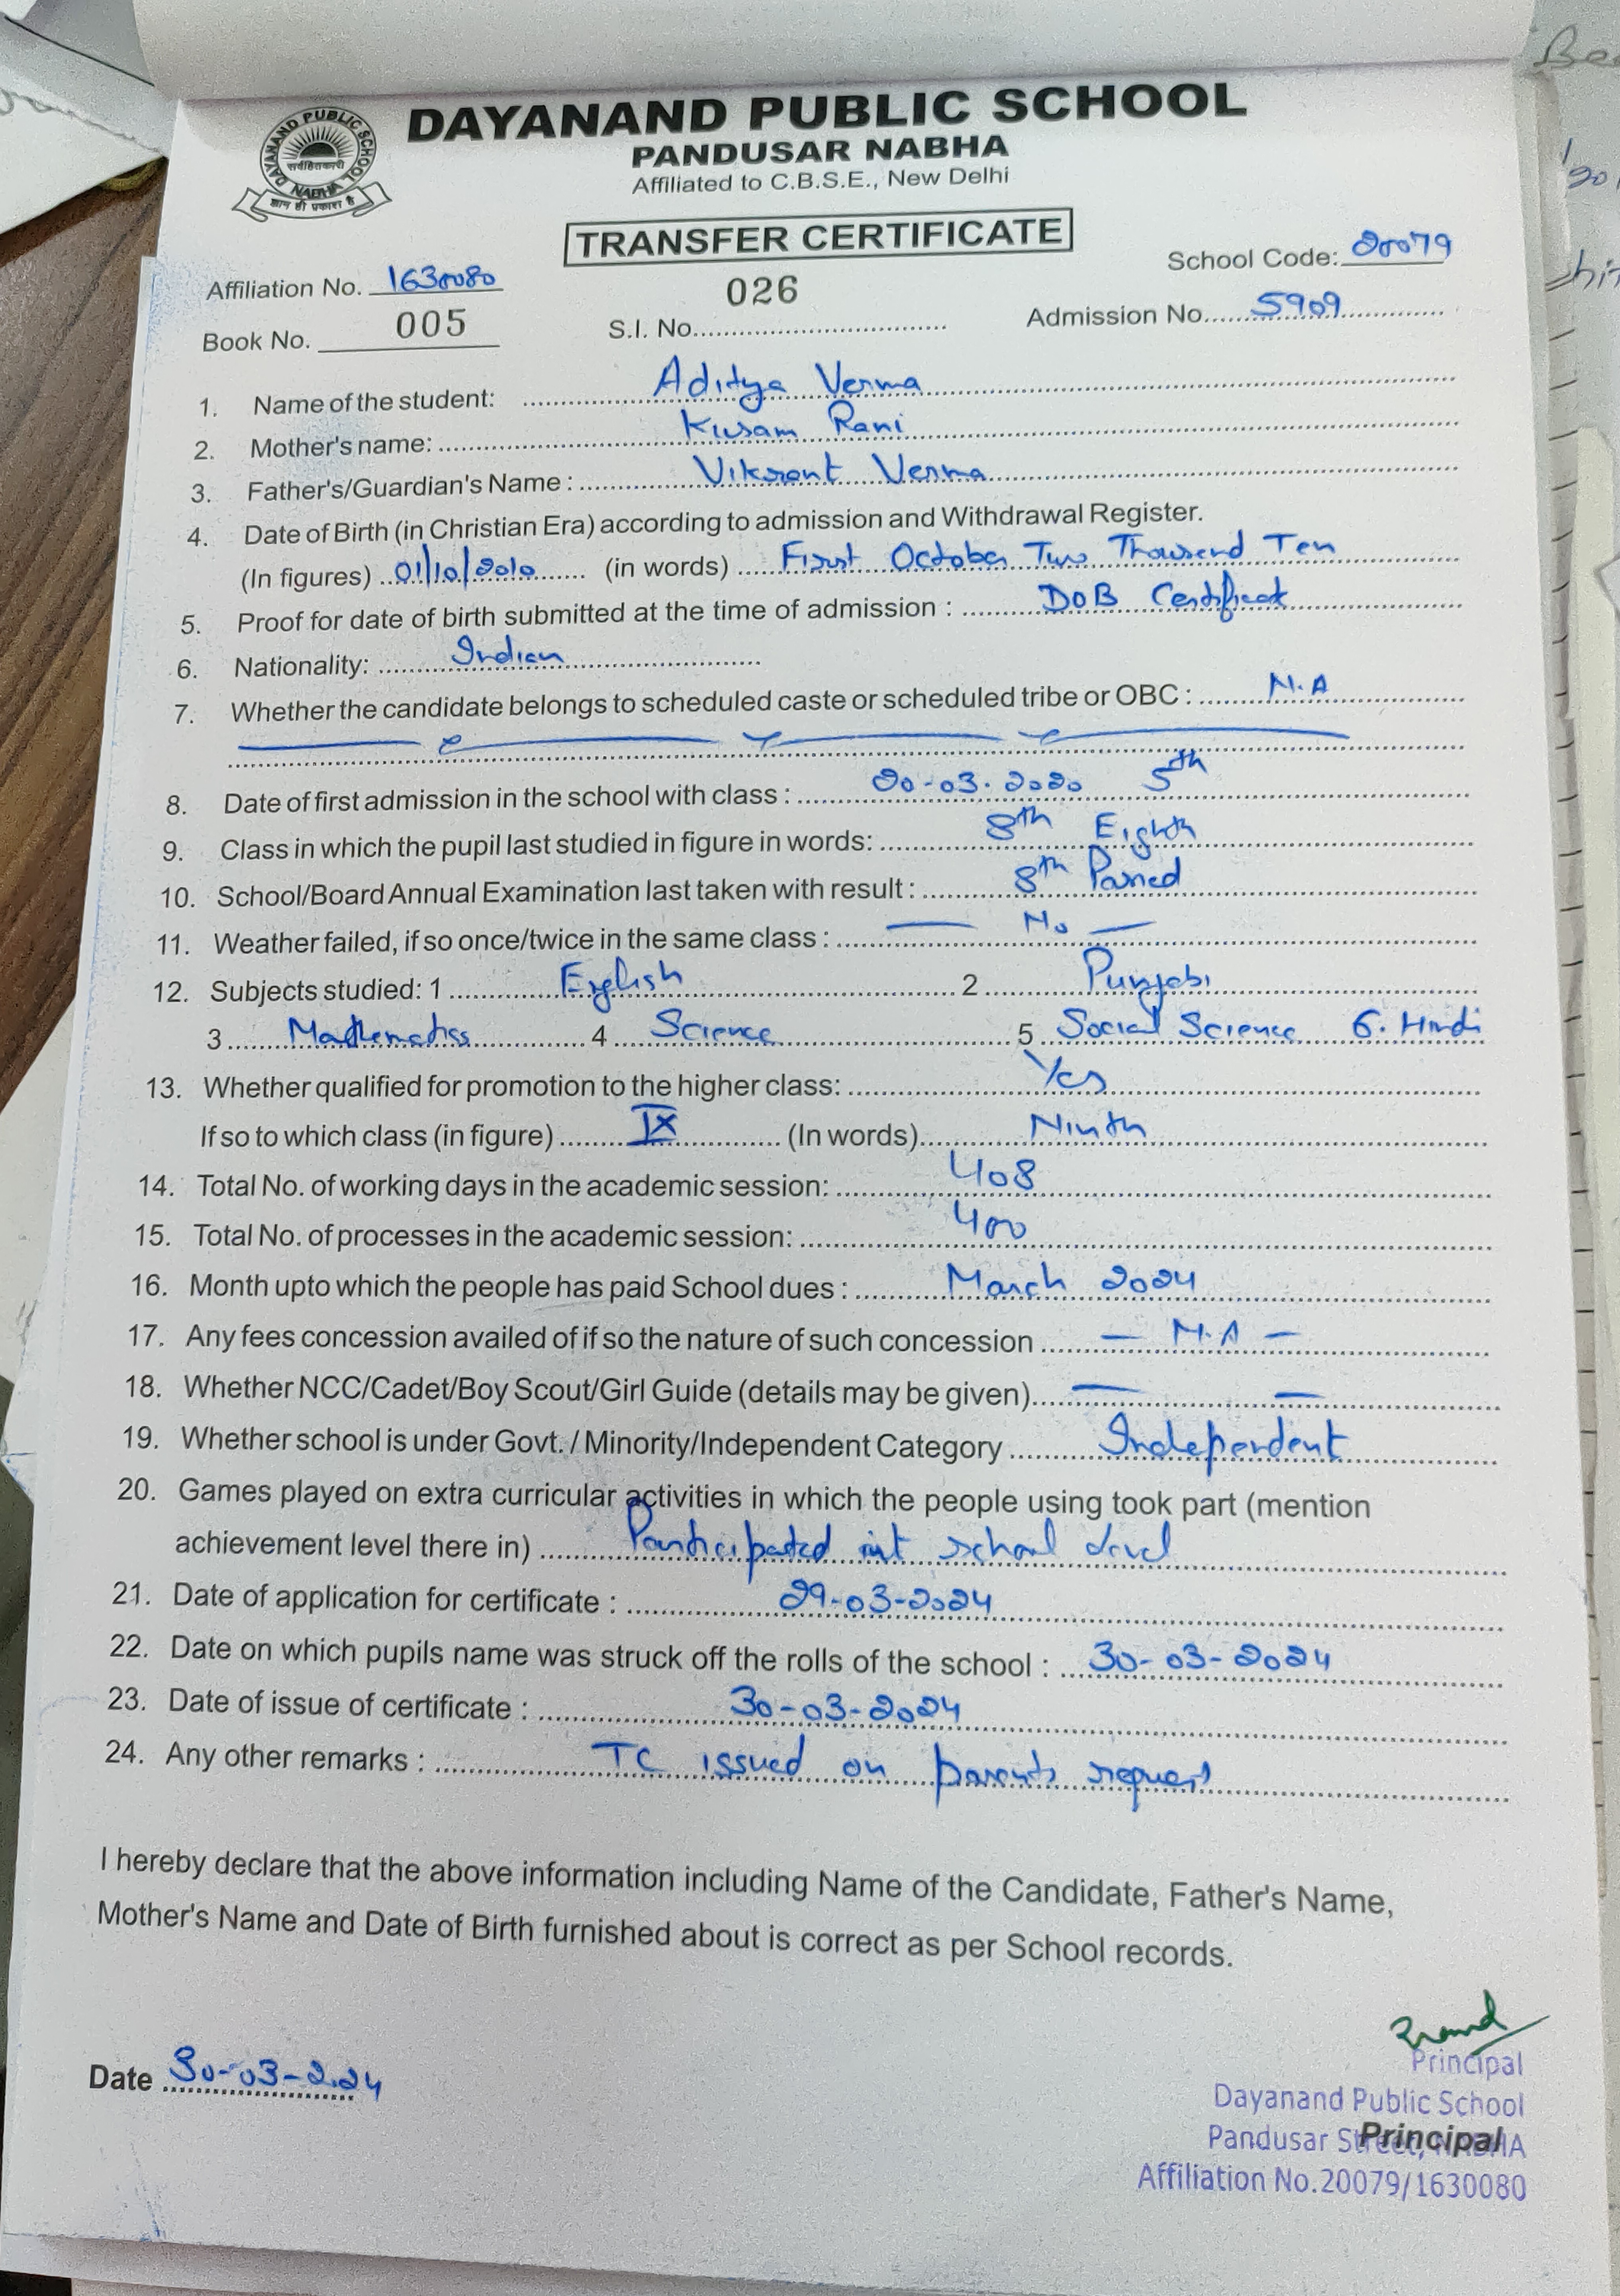 DAYANAND PUBLIC SCHOOL
PANDUSAR NABHA
Affiliated to C.B.S.E., New Delhi
DAYANAND PUBLIC SCHOOL
सर्वहितकारी
NABHA
ज्ञान ही प्रकाश है
TRANSFER CERTIFICATE
Affiliation No. 1630080 School Code: 20079
Book No. 005 S.I. No. 026 Admission No. 5909
1. Name of the student: Aditya Verma
2. Mother's name: Kusam Rani
3. Father's/Guardian's Name : Vikrant Verma
4. Date of Birth (in Christian Era) according to admission and Withdrawal Register.
(In figures) 01/10/2010 (in words) First October Two Thousend Ten
5. Proof for date of birth submitted at the time of admission : DOB Certificat
6. Nationality: Indian
7. Whether the candidate belongs to scheduled caste or scheduled tribe or OBC : N.A
8. Date of first admission in the school with class : 20-03.2020 5th
9. Class in which the pupil last studied in figure in words: 8th Eighth
10. School/Board Annual Examination last taken with result : 8th Passed
11. Weather failed, if so once/twice in the same class : — No —
12. Subjects studied: 1 English 2 Punjabi
3 Mathematics 4 Science 5 Social Science 6. Hindi
13. Whether qualified for promotion to the higher class: Yes
If so to which class (in figure) IX (In words) Ninth
14. Total No. of working days in the academic session: 408
15. Total No. of processes in the academic session: 400
16. Month upto which the people has paid School dues : March 2024
17. Any fees concession availed of if so the nature of such concession — N.A —
18. Whether NCC/Cadet/Boy Scout/Girl Guide (details may be given) — —
19. Whether school is under Govt. / Minority/Independent Category Independent
20. Games played on extra curricular activities in which the people using took part (mention
achievement level there in) Participated school level
21. Date of application for certificate : 29-03-2024
22. Date on which pupils name was struck off the rolls of the school : 30-03-2024
23. Date of issue of certificate : 30-03-2024
24. Any other remarks : TC issued on parents request
I hereby declare that the above information including Name of the Candidate, Father's Name,
Mother's Name and Date of Birth furnished about is correct as per School records.
Date 30-03-2024
Principal
Dayanand Public School
Pandusar Street, NABHA
Principal
Affiliation No.20079/1630080